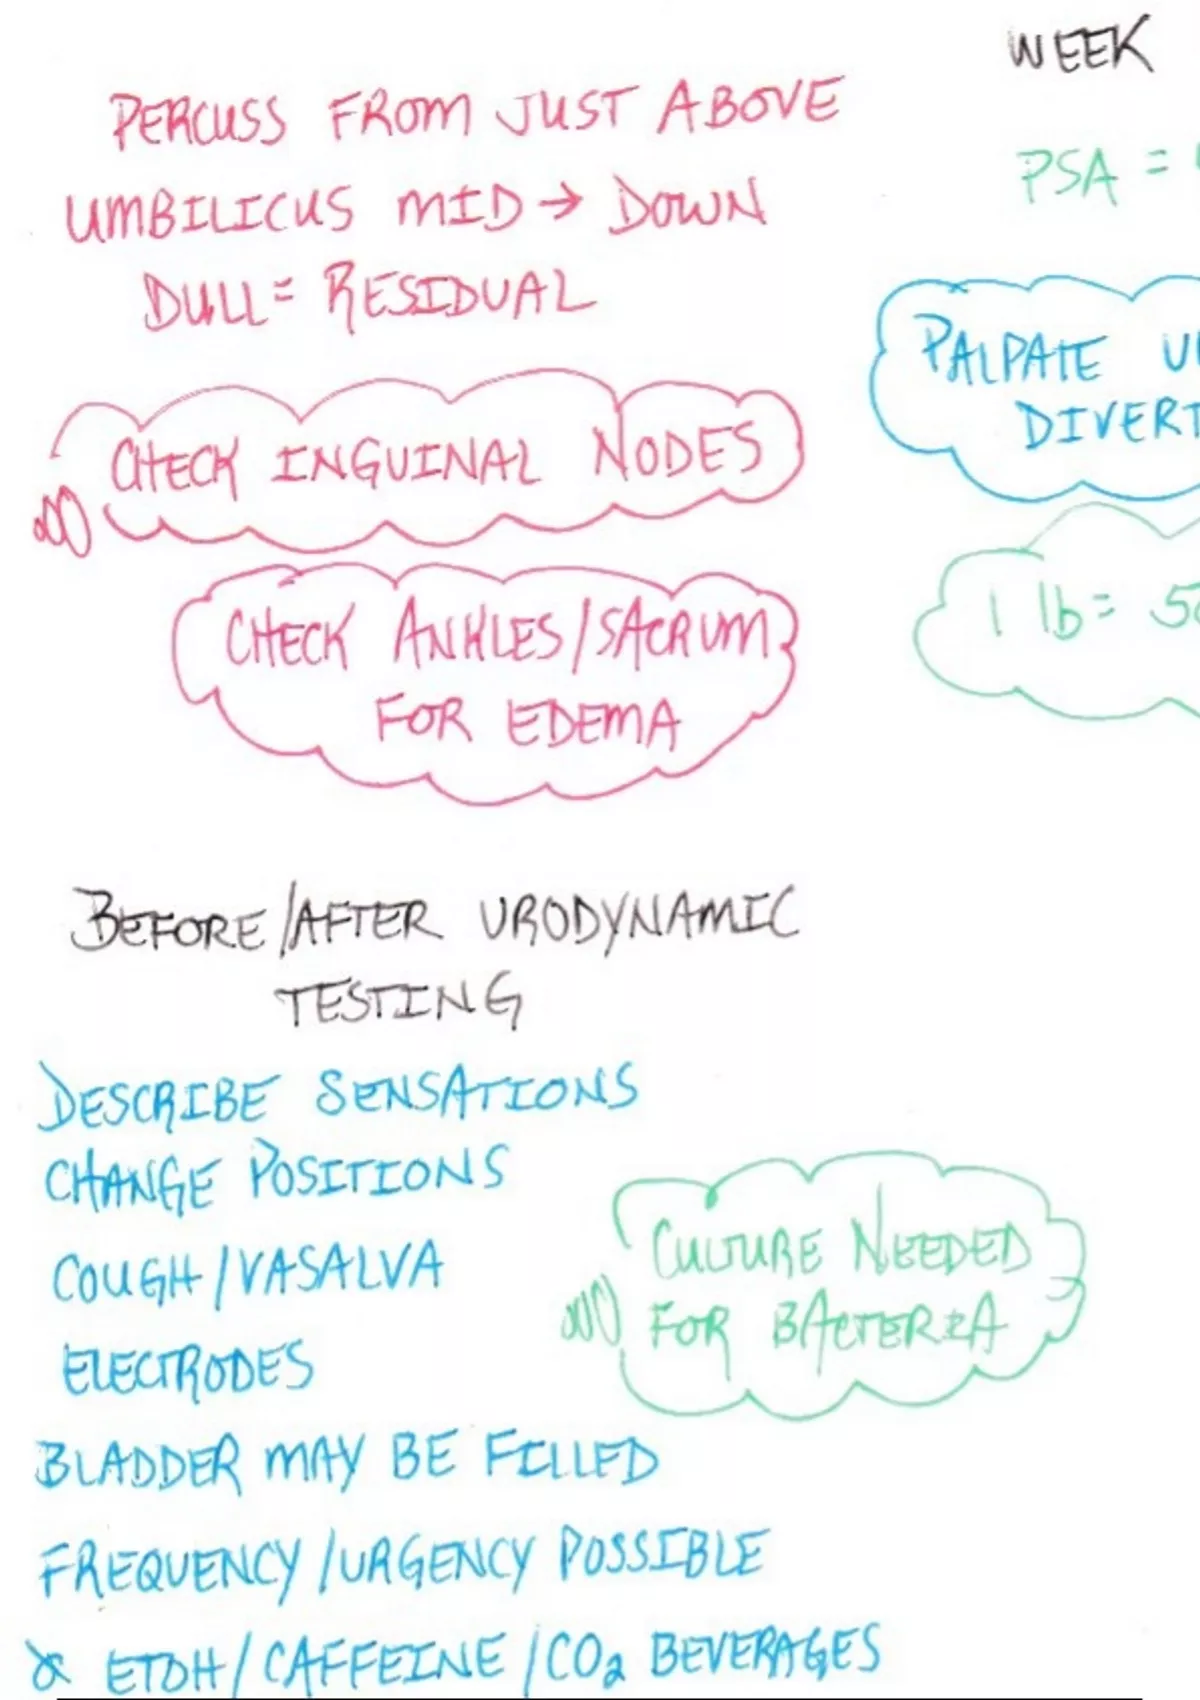 WEEK
PERCUSS FROM JUST ABOVE
UMBILICUS MID → DOWN
DULL = RESIDUAL
PSA =
PALPATE
DIVERT
CHECK INGUINAL NODES
1 lb =
CHECK ANKLES/SACRUM
FOR EDEMA
BEFORE/AFTER URODYNAMIC
TESTING
DESCRIBE SENSATIONS
CHANGE POSITIONS
COUGH/VASALVA
ELECTRODES
CULTURE NEEDED
FOR BACTERIA
BLADDER MAY BE FILLED
FREQUENCY/URGENCY POSSIBLE
ETOH/CAFFEINE/CO₂ BEVERAGES